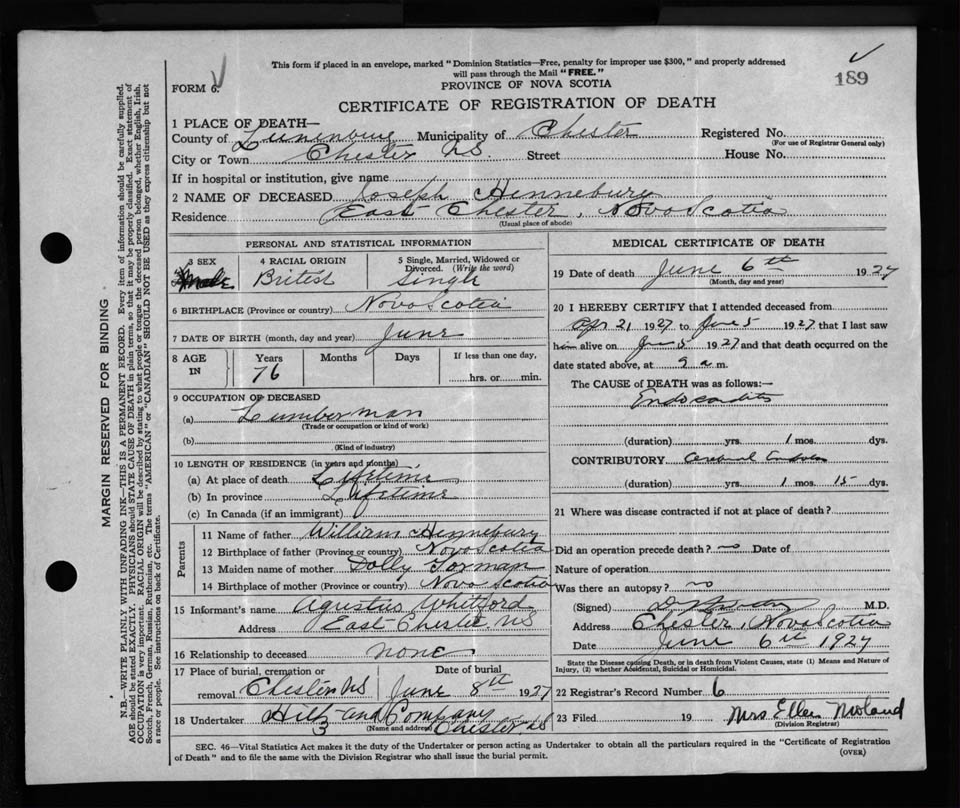 This form if placed in an envelope, marked "Dominion Statistics—Free, penalty for improper use $300," and properly addressed
will pass through the Mail "FREE."
189
FORM 6.
PROVINCE OF NOVA SCOTIA
CERTIFICATE OF REGISTRATION OF DEATH
1 PLACE OF DEATH—
County of Lunenburg Municipality of Chester Registered No.
(For use of Registrar General only)
City or Town Chester N.S. Street House No.
If in hospital or institution, give name
2 NAME OF DECEASED Joseph Hennebury
Residence East Chester, Nova Scotia
(Usual place of abode)
PERSONAL AND STATISTICAL INFORMATION
3 SEX 4 RACIAL ORIGIN 5 Single, Married, Widowed or
Divorced. (Write the word)
Male British Single
6 BIRTHPLACE (Province or country) Nova Scotia
7 DATE OF BIRTH (month, day and year) June
8 AGE IN Years Months Days If less than one day,
76 hrs. or min.
9 OCCUPATION OF DECEASED
(a) Lumberman
(Trade or occupation or kind of work)
(b)
(Kind of industry)
10 LENGTH OF RESIDENCE (in years and months)
(a) At place of death Lifetime
(b) In province Lifetime
(c) In Canada (if an immigrant)
Parents
11 Name of father William Hennebury
12 Birthplace of father (Province or country) Nova Scotia
13 Maiden name of mother Dolly
14 Birthplace of mother (Province or country) Nova Scotia
15 Informant's name Agustus Whitford
Address East Chester, NS
16 Relationship to deceased none
17 Place of burial, cremation or Date of burial
removal Chester NS June 8th 1927
18 Undertaker and Company
3 (Name and address) Chester, NS
MEDICAL CERTIFICATE OF DEATH
19 Date of death June 6th 1927
(Month, day and year)
20 I HEREBY CERTIFY that I attended deceased from
Apr 21 1927 to June 5 1927 that I last saw
him alive on June 5 1927 and that death occurred on the
date stated above, at 9 a m.
The CAUSE of DEATH was as follows:—
Endocarditis
(duration) yrs. 1 mos. dys.
CONTRIBUTORY Cerebral
(duration) yrs. 1 mos. 15 dys.
21 Where was disease contracted if not at place of death?
Did an operation precede death? no Date of
Nature of operation
Was there an autopsy? no
(Signed) M.D.
Address Chester, Nova Scotia
Date June 6th 1927
State the Disease causing Death, or in death from Violent Causes, state (1) Means and Nature of
Injury, (2) whether Accidental, Suicidal or Homicidal.
22 Registrar's Record Number 6
23 Filed 19 Mrs Ellen
(Division Registrar)
SEC. 46—Vital Statistics Act makes it the duty of the Undertaker or person acting as Undertaker to obtain all the particulars required in the "Certificate of Registration
of Death" and to file the same with the Division Registrar who shall issue the burial permit.
(OVER)
MARGIN RESERVED FOR BINDING
N.B.—WRITE PLAINLY WITH UNFADING INK—THIS IS A PERMANENT RECORD. Every item of information should be carefully supplied.
AGE should be stated EXACTLY. PHYSICIANS should STATE CAUSE OF DEATH in plain terms, so that it may be properly classified. Exact statement of
OCCUPATION is very important. RACIAL ORIGIN will be described by stating to what people or tongue the deceased person belonged, whether English, Irish,
Scotch, French, German, Russian, Ruthenian, etc. The terms "AMERICAN" or "CANADIAN" SHOULD NOT BE USED as they express citizenship but not
a race or people. See instructions on back of Certificate.